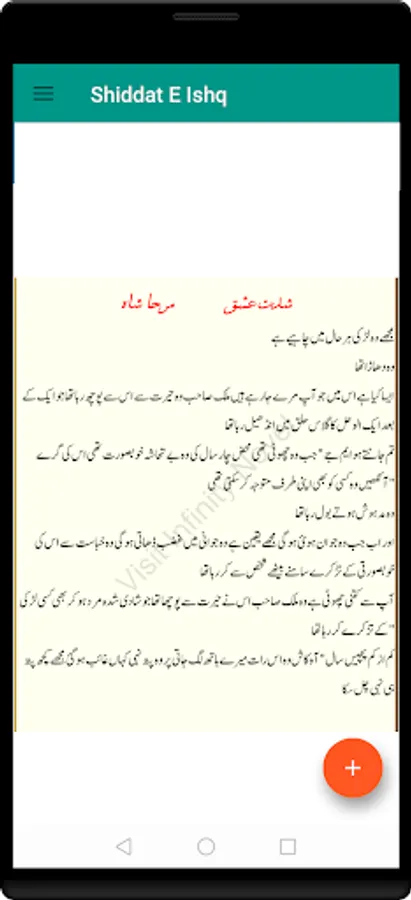 Shiddat E Ishq
شدت عشق مرحا شاہ
مجھے وہ لڑکی ہر حال میں چاہیے ہے
وہ دھاڑا تھا
ایسا کیا ہے اس میں جو آپ مرے جا رہے ہیں ملک صاحب وہ حیرت سے اس سے پوچھ رہا تھا جو ایک کے
بعد ایک الوحل کا گلاس حلق میں انڈھیل رہا تھا
تم جانتے ہو ایم جے "جب وہ چھوٹی تھی محض چار سال کی وہ بے تحاشہ خوبصورت تھی اس کی گرے
"آنکھیں وہ کسی کو بھی اپنی طرف متوجہ کر سکتی تھی
وہ مدہوش ہوتے بول رہا تھا
اور اب جب وہ جوان ہوئی ہو گی مجھے یقین ہے وہ جوانی میں غضب ڈھاتی ہو گی وہ خباست سے اس کی
خوبصورتی کے تزکرے سامنے بیٹھے شخص سے کر رہا تھا
آپ سے کتنی چھوٹی ہے وہ ملک صاحب اس نے حیرت سے پوچھا تھا جو شادی شدہ مرد ہو کر بھی کسی لڑکی
"کے تزکرے کر رہا تھا
کم از کم پچیس سال "آہ کاش وہ اس رات میرے ہاتھ لگ جاتی پر وہ پتہ نہیں کہاں غائب ہو گئی مجھے کچھ پتہ
ہی نہیں چل سکا
Visit Infinity Novel